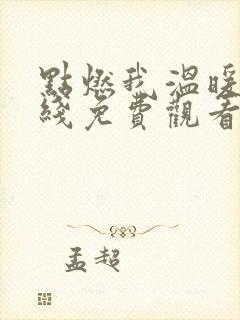 點燃我溫暖
綫免費觀看
孟超